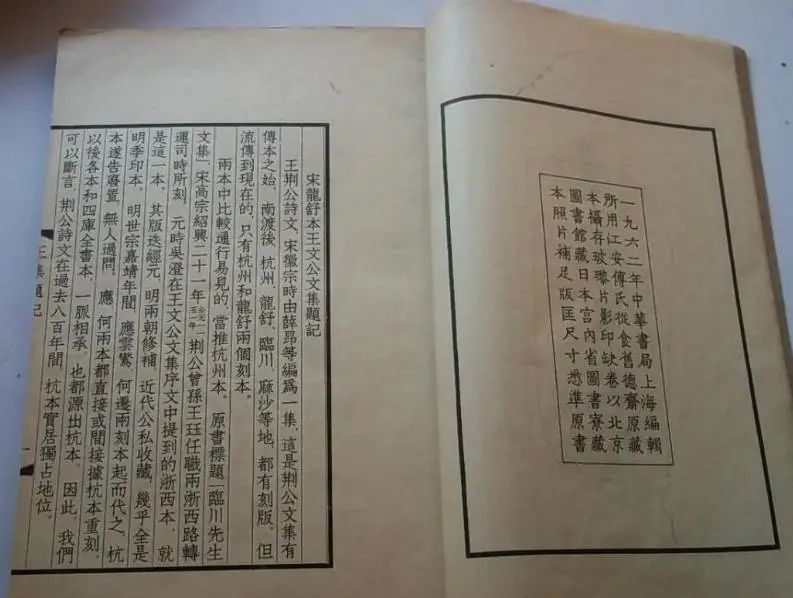 一九六二年中華書局上海編輯
所用江安傅氏從食舊德齋原藏
本攝存玻瓈片影印缺卷以北京
圖書館藏日本宮內省圖書寮藏
本照片補足版匡尺寸悉準原書
宋龍舒本王文公文集題記
王荆公詩文，宋徽宗時由薛昂等編爲一集，這是荆公文集有
傳本之始。南渡後，杭州、龍舒、臨川、麻沙等地，都有刻版。但
流傳到現在的，只有杭州和龍舒兩個刻本。
兩本中比較通行易見的，當推杭州本。原書標題「臨川先生
文集」，宋高宗紹興二十一年公元一一五一年荆公曾孫王珏任職兩浙西路轉
運司時所刻。元時吳澄在王文公文集序文中提到的浙西本，就
是這一本。其版迭經元、明兩朝修補，近代公私收藏，幾乎全是
明季印本。明世宗嘉靖年間，應雲鸑、何遷兩刻本起而代之，杭
本遂告廢置，無人過問。應、何兩本都直接或間接據杭本重刻，
以後各本和四庫全書本，一脈相承，也都源出杭本。因此，我們
可以斷言，荆公詩文在過去八百年間，杭本實居獨占地位。
王集題記
一